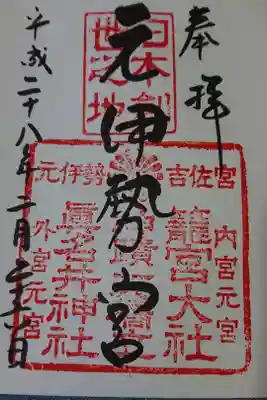 奉拝
日本創
世之地
元伊勢宮
吉佐宮
内宮元宮
籠宮大社
元伊勢
眞名井神社
外宮元宮
平成二十八年二月二十日